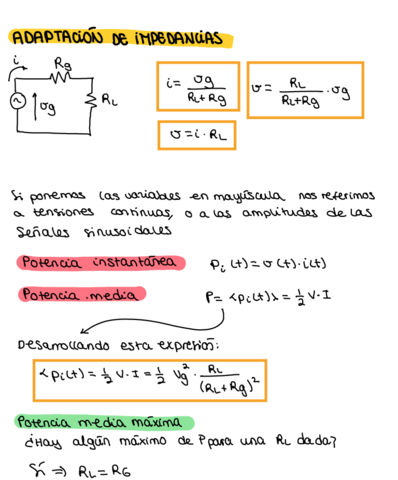 ADAPTACIÓN DE IMPEDANCIAS
i Rg
RL
vg
i = vg / (RL+Rg)
v = RL / (RL+Rg) · vg
v = i · RL
Si ponemos las variables en mayúscula nos referimos
a tensiones continuas, o a las amplitudes de las
señales sinusoidales
Potencia instantánea pi(t) = v(t)·i(t)
Potencia media P = <pi(t)> = 1/2 V·I
Desarrollando esta expresión:
<pi(t) = 1/2 V·I = 1/2 Vg² · RL / (RL+Rg)²
Potencia media máxima
¿Hay algún máximo de P para una RL dada?
Sí ⇒ RL = RG